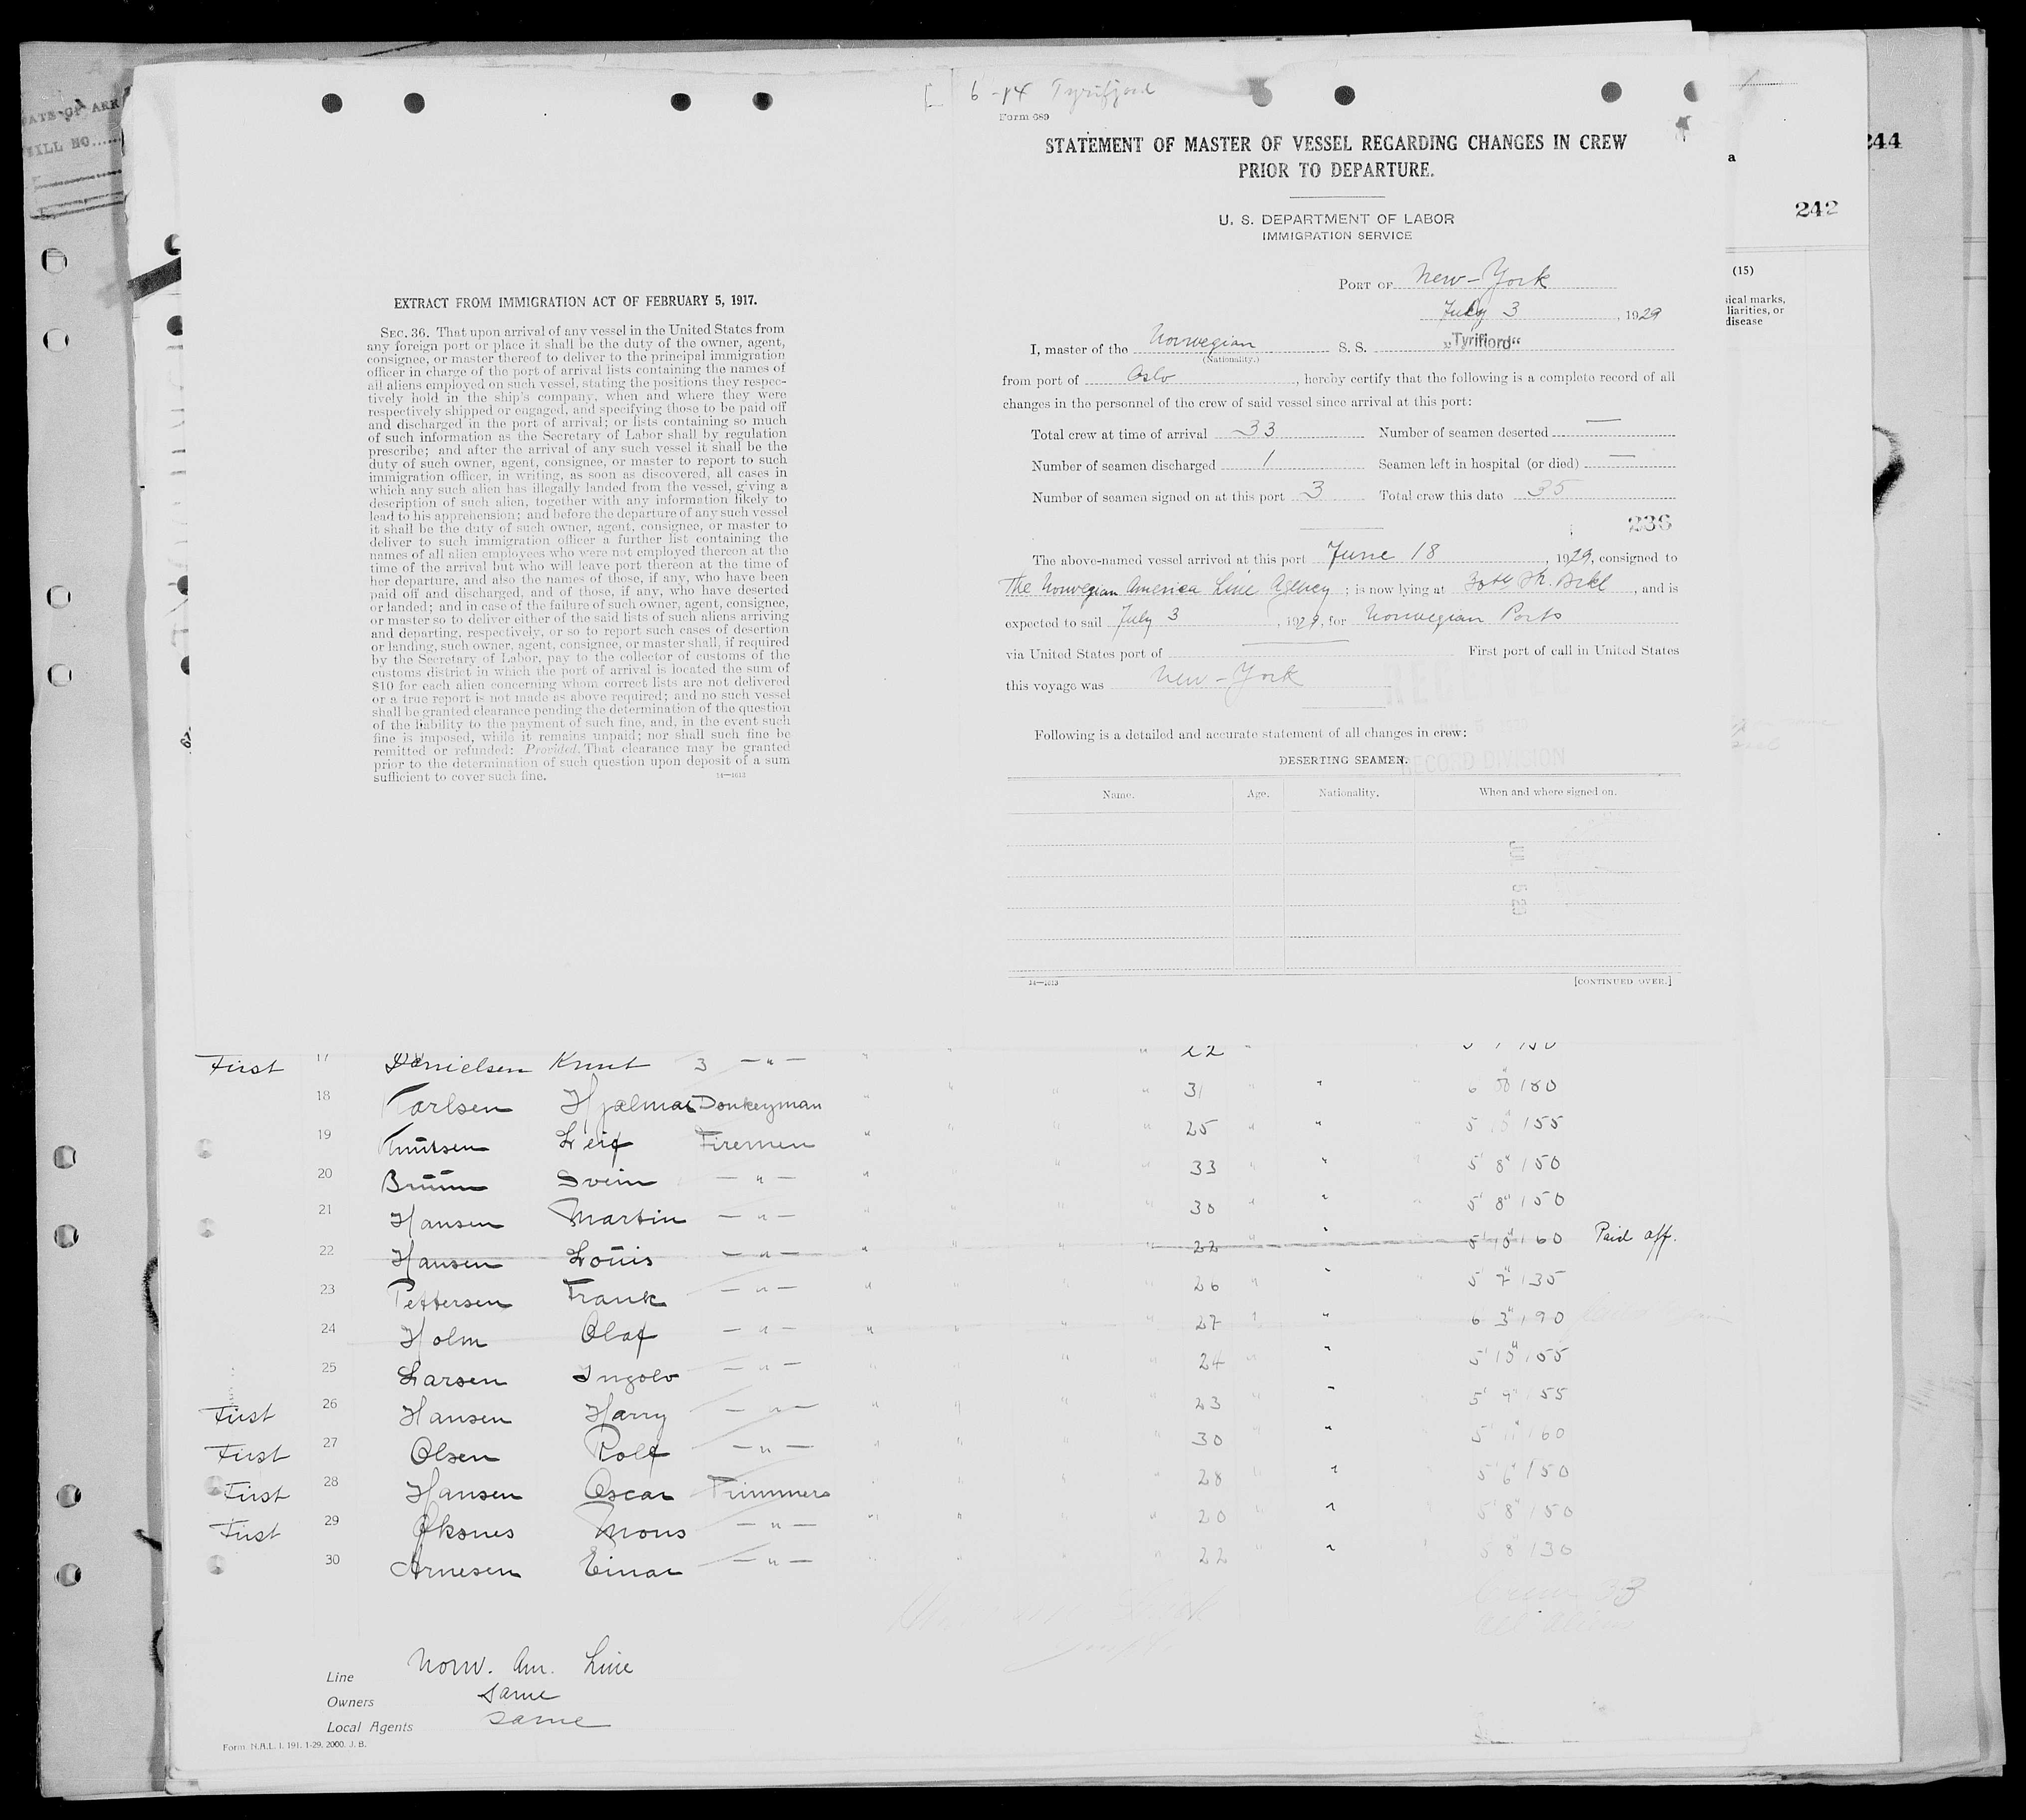 DATE OF ARR
244
242
a
(15)
sical marks,
liarities, or
disease
EXTRACT FROM IMMIGRATION ACT OF FEBRUARY 5, 1917.
SEC. 36. That upon arrival of any vessel in the United States from
any foreign port or place it shall be the duty of the owner, agent,
consignee, or master thereof to deliver to the principal immigration
officer in charge of the port of arrival lists containing the names of
all aliens employed on such vessel, stating the positions they respec-
tively hold in the ship's company, when and where they were
respectively shipped or engaged, and specifying those to be paid off
and discharged in the port of arrival; or lists containing so much
of such information as the Secretary of Labor shall by regulation
prescribe; and after the arrival of any such vessel it shall be the
duty of such owner, agent, consignee, or master to report to such
immigration officer, in writing, as soon as discovered, all cases in
which any such alien has illegally landed from the vessel, giving a
description of such alien, together with any information likely to
lead to his apprehension; and before the departure of any such vessel
it shall be the duty of such owner, agent, consignee, or master to
deliver to such immigration officer a further list containing the
names of all alien employees who were not employed thereon at the
time of the arrival but who will leave port thereon at the time of
her departure, and also the names of those, if any, who have been
paid off and discharged, and of those, if any, who have deserted
or landed; and in case of the failure of such owner, agent, consignee,
or master so to deliver either of the said lists of such aliens arriving
and departing, respectively, or so to report such cases of desertion
or landing, such owner, agent, consignee, or master shall, if required
by the Secretary of Labor, pay to the collector of customs of the
customs district in which the port of arrival is located the sum of
$10 for each alien concerning whom correct lists are not delivered
or a true report is not made as above required; and no such vessel
shall be granted clearance pending the determination of the question
of the liability to the payment of such fine, and, in the event such
fine is imposed, while it remains unpaid; nor shall such fine be
remitted or refunded: Provided, That clearance may be granted
prior to the determination of such question upon deposit of a sum
sufficient to cover such fine.
14—1613
6-14 Tyrifjord
Form 689
STATEMENT OF MASTER OF VESSEL REGARDING CHANGES IN CREW
PRIOR TO DEPARTURE.
U. S. DEPARTMENT OF LABOR
IMMIGRATION SERVICE
PORT OF New-York
July 3, 1929
I, master of the Norwegian S. S. „Tyrifjord“
(Nationality.)
from port of Oslo, hereby certify that the following is a complete record of all
changes in the personnel of the crew of said vessel since arrival at this port:
Total crew at time of arrival 33 Number of seamen deserted —
Number of seamen discharged 1 Seamen left in hospital (or died) —
Number of seamen signed on at this port 3 Total crew this date 35
236
The above-named vessel arrived at this port June 18, 1929, consigned to
The Norwegian America Line Agency; is now lying at 30th St. Bkl, and is
expected to sail July 3, 1929, for Norwegian Ports
via United States port of — First port of call in United States
this voyage was New-York
RECORD DIVISION
Following is a detailed and accurate statement of all changes in crew:
DESERTING SEAMEN.
Name. Age. Nationality. When and where signed on.
JUL 5 29
14—1613 [CONTINUED OVER.]
First 17 Danielsen Knut 3 —"— " " " 22 "
18 Karlsen Hjalmar Donkeyman " " " " 31 " " 6 180
19 Knutsen Leif Firemen " " 25 " " 5 155
20 Bruun Svein —"— " " 33 " " 5' 8" 150
21 Hansen Martin —"— " 30 " " 5' 8" 150
22 Hansen Louis —"— " " " " 22 " " 5' 10" 160 Paid off.
23 Pettersen Frank —"— " " " " 26 " " 5' 7" 135
24 Holm Olaf —"— " " " " 27 " " 6 3" 190
25 Larsen Ingolv —"— " " " 24 " " 5' 10" 155
First 26 Hansen Harry —"— " " " " 23 " " 5' 9" 155
First 27 Olsen Rolf —"— " " " " 30 " " 5' 11" 160
First 28 Hansen Oscar Trimmers " " " " 28 " " 5' 6" 150
First 29 Øksnes Mons —"— " " " " 20 " " 5' 8" 150
30 Arnesen Einar —"— " " " " 22 " " 5' 8" 130
Crew 33
All Aliens
Line Norw. Am. Line
Owners same
Local Agents same
Form. N.A.L. I. 191. 1-29. 2000. J. B.